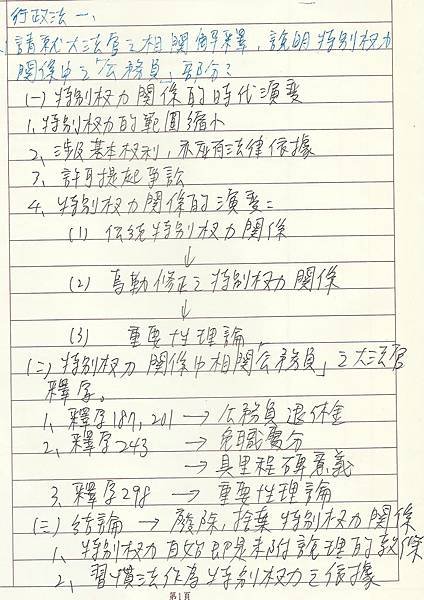 行政法一、
請就大法官之相關解釋，說明特別权力
關係中之「公務員」部分？
(一)特別权力關係的時代演變
1、特別权力的範圍縮小
2、涉及基本权利，亦应有法律依據
3、許可提起爭訟
4、特別权力關係的演變：
(1) 傳統特別权力關係
↓
(2) 烏勒修正之特別权力關係
↓
(3) 重要性理論
(二)特別权力關係中相關「公務員」之大法官
釋字。
1、釋字187,201→公務員退休金
2、釋字243 →免職處分
→具里程碑意義
3、釋字298 →重要性理論
(三)結論→廢除、捨棄特別权力關係
1、特別权力自始即是未附說理的教條
2、習慣法作為特別权力之依據
第1頁